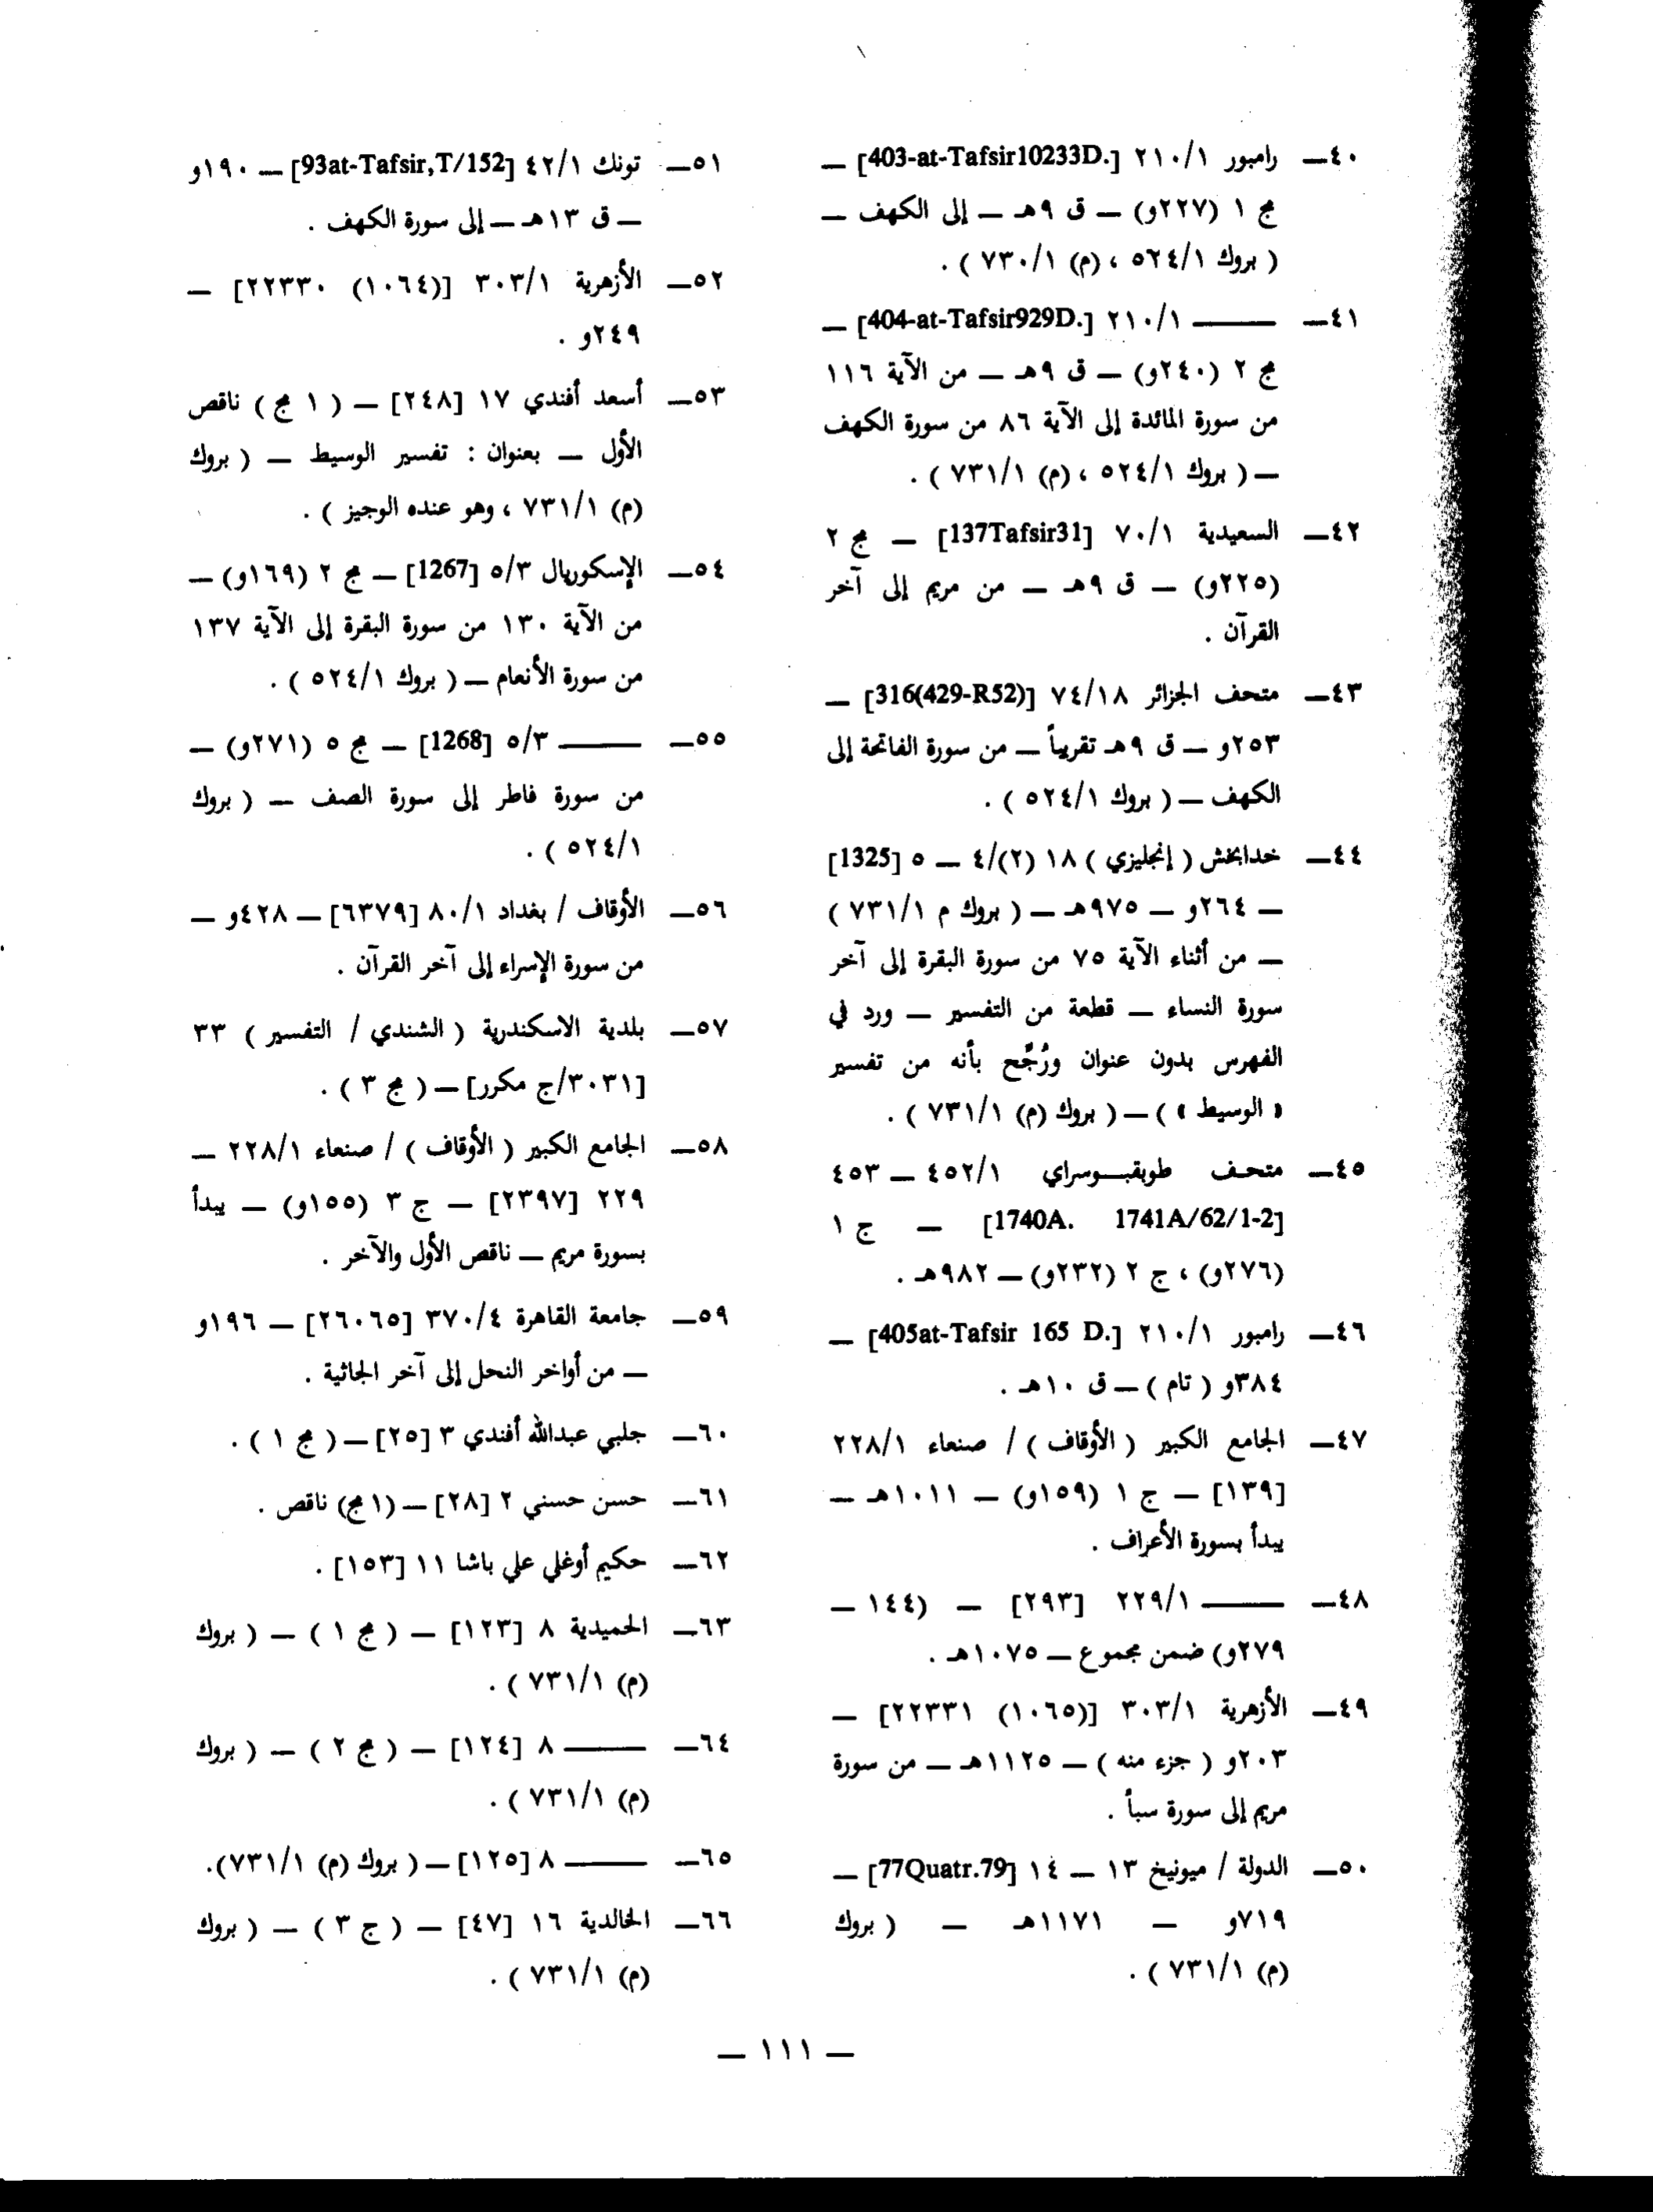 ٤٠ـ رامبور ٢١٠/١ [403-at-Tafsir10233D.] —
مج ١ (٢٢٧و) — ق ٩هـ — إلى الكهف —
( بروك ٥٢٤/١ ، (م) ٧٣٠/١ ) .
٤١ـ ——— ٢١٠/١ [404-at-Tafsir929D.] —
مج ٢ (٢٤٠و) — ق ٩هـ — من الآية ١١٦
من سورة المائدة إلى الآية ٨٦ من سورة الكهف
— ( بروك ٥٢٤/١ ، (م) ٧٣١/١ ) .
٤٢ـ السعيدية ٧٠/١ [137Tafsir31] — مج ٢
(٢٢٥و) — ق ٩هـ — من مريم إلى آخر
القرآن .
٤٣ـ متحف الجزائر ٧٤/١٨ [316(429-R52)] —
٢٥٣و — ق ٩هـ تقريباً — من سورة الفاتحة إلى
الكهف — ( بروك ٥٢٤/١ ) .
٤٤ـ خدابخش ( إنجليزي ) ١٨ (٢)/٤ — ٥ [1325]
— ٢٦٤و — ٩٧٥هـ — ( بروك م ٧٣١/١ )
— من أثناء الآية ٧٥ من سورة البقرة إلى آخر
سورة النساء — قطعة من التفسير — ورد في
الفهرس بدون عنوان ورُجِّح بأنه من تفسير
« الوسيط » ) — ( بروك (م) ٧٣١/١ ) .
٤٥ـ متحف طوبقبوسراي ٤٥٢/١ — ٤٥٣
[1740A. 1741A/62/1-2] — ج ١
(٢٧٦و) ، ج ٢ (٢٣٢و) — ٩٨٢هـ .
٤٦ـ رامبور ٢١٠/١ [405at-Tafsir 165 D.] —
٣٨٤و ( تام ) — ق ١٠هـ .
٤٧ـ الجامع الكبير ( الأوقاف ) / صنعاء ٢٢٨/١
[١٣٩] — ج ١ (١٥٩و) — ١٠١١هـ —
يبدأ بسورة الأعراف .
٤٨ـ ——— ٢٢٩/١ [٢٩٣] — (١٤٤ —
٢٧٩و) ضمن مجموع — ١٠٧٥هـ .
٤٩ـ الأزهرية ٣٠٣/١ [(١٠٦٥) ٢٢٣٣١] —
٢٠٣و ( جزء منه ) — ١١٢٥هـ — من سورة
مريم إلى سورة سبأ .
٥٠ـ الدولة / ميونيخ ١٣ — ١٤ [77Quatr.79] —
٧١٩و — ١١٧١هـ — ( بروك
(م) ٧٣١/١ ) .
٥١ـ تونك ٤٢/١ [93at-Tafsir,T/152] — ١٩٠و
— ق ١٣هـ — إلى سورة الكهف .
٥٢ـ الأزهرية ٣٠٣/١ [(١٠٦٤) ٢٢٣٣٠] —
٢٤٩و .
٥٣ـ أسعد أفندي ١٧ [٢٤٨] — ( ١ مج ) ناقص
الأول — بعنوان : تفسير الوسيط — ( بروك
(م) ٧٣١/١ ، وهو عنده الوجيز ) .
٥٤ـ الإسكوريال ٥/٣ [1267] — مج ٢ (١٦٩و) —
من الآية ١٣٠ من سورة البقرة إلى الآية ١٣٧
من سورة الأنعام — ( بروك ٥٢٤/١ ) .
٥٥ـ ——— ٥/٣ [1268] — مج ٥ (٢٧١و) —
من سورة فاطر إلى سورة الصف — ( بروك
٥٢٤/١ ) .
٥٦ـ الأوقاف / بغداد ٨٠/١ [٦٣٧٩] — ٤٢٨و —
من سورة الإسراء إلى آخر القرآن .
٥٧ـ بلدية الاسكندرية ( الشندي / التفسير ) ٣٣
[٣٠٣١/ج مكرر] — ( مج ٣ ) .
٥٨ـ الجامع الكبير ( الأوقاف ) / صنعاء ٢٢٨/١ —
٢٢٩ [٢٣٩٧] — ج ٣ (١٥٥و) — يبدأ
بسورة مريم — ناقص الأول والآخر .
٥٩ـ جامعة القاهرة ٣٧٠/٤ [٢٦٠٦٥] — ١٩٦و
— من أواخر النحل إلى آخر الجاثية .
٦٠ـ جلبي عبدالله أفندي ٣ [٢٥] — ( مج ١ ) .
٦١ـ حسن حسني ٢ [٢٨] — (١ مج) ناقص .
٦٢ـ حكيم أوغلي علي باشا ١١ [١٥٣] .
٦٣ـ الحميدية ٨ [١٢٣] — ( مج ١ ) — ( بروك
(م) ٧٣١/١ ) .
٦٤ـ ——— ٨ [١٢٤] — ( مج ٢ ) — ( بروك
(م) ٧٣١/١ ) .
٦٥ـ ——— ٨ [١٢٥] — ( بروك (م) ٧٣١/١).
٦٦ـ الخالدية ١٦ [٤٧] — ( ج ٣ ) — ( بروك
(م) ٧٣١/١ ) .
— ١١١ —